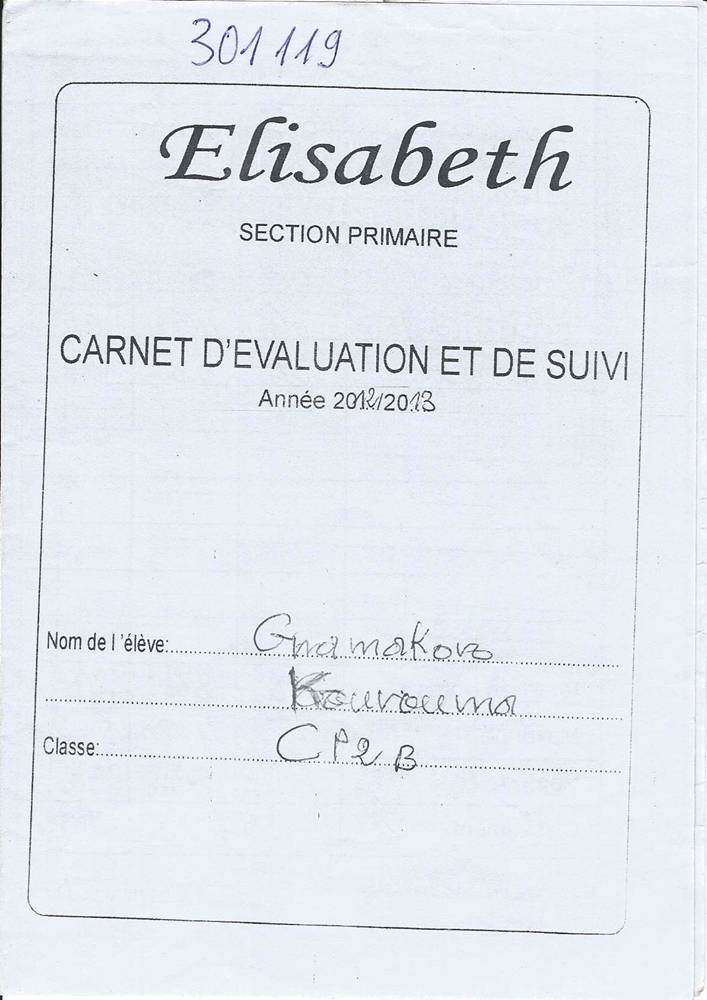 301119
Elisabeth
SECTION PRIMAIRE
CARNET D'EVALUATION ET DE SUIVI
Année 2012/2013
Nom de l 'élève: Gnamakoro
Kourouma
Classe: CP2 B